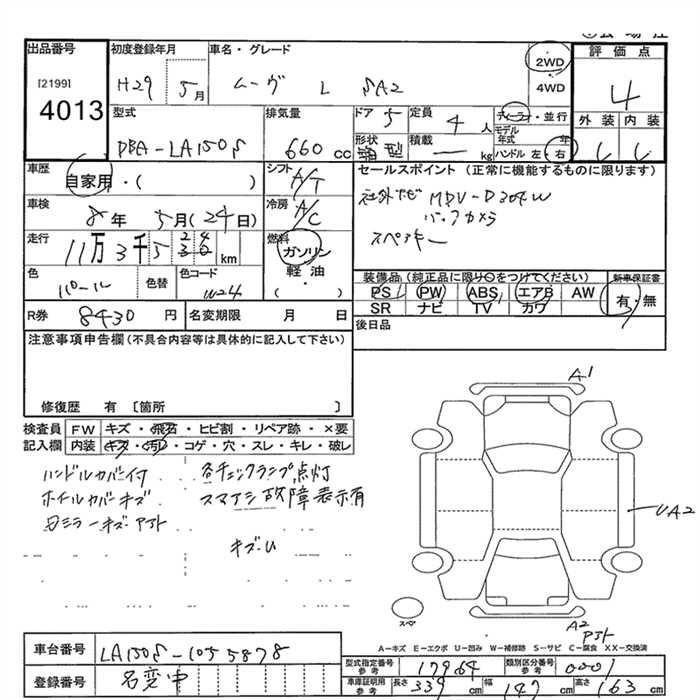 出品番号
[2199]
4013
初度登録年月
H29 5月
車名・グレード
ムーヴ L SA2
2WD
4WD
評価点
4
外装 内装
型式
DBA-LA150S
排気量
660 cc
ドア 5
定員 4 人
形状 箱型
積載 ー kg
ディーラー・並行
モデル年式 年
ハンドル 左・右
車歴
自家用・( )
シフト
A/T
セールスポイント (正常に機能するものに限ります)
社外ナビ MDV-D304W
バックカメラ
スペアキー
車検
8年 5月(24日)
冷房
A/C
走行
11万3千5 km
燃料
ガソリン
軽油・
( )
色
パール
色替
色コード
W24
装備品 (純正品に限り○をつけてください)
PS PW ABS エアB AW
SR ナビ TV カワ
新車保証書
有・無
R券 8430 円
名変期限 月 日
後日品
注意事項申告欄 (不具合内容等は具体的に記入して下さい)
修復歴 有 〔箇所 〕
検査員 FW キズ・飛石・ヒビ割・リペア跡・×要
記入欄 内装 キズ・汚れ・コゲ・穴・スレ・キレ・破レ
ハンドルカバー付
ホイルカバーキズ
各チェックランプ点灯
スマアシ故障表示有
キズU
A1
UA2
A2
スペア
A-キズ E-エクボ U-凹み W-補修跡 S-サビ C-腐食 XX-交換済
車台番号 LA150S-1055878
登録番号 名変中
型式指定番号 参考 17964
類別区分番号 参考 0001
車庫証明用 参考 長さ 339 cm 幅 147 cm 高さ 163 cm